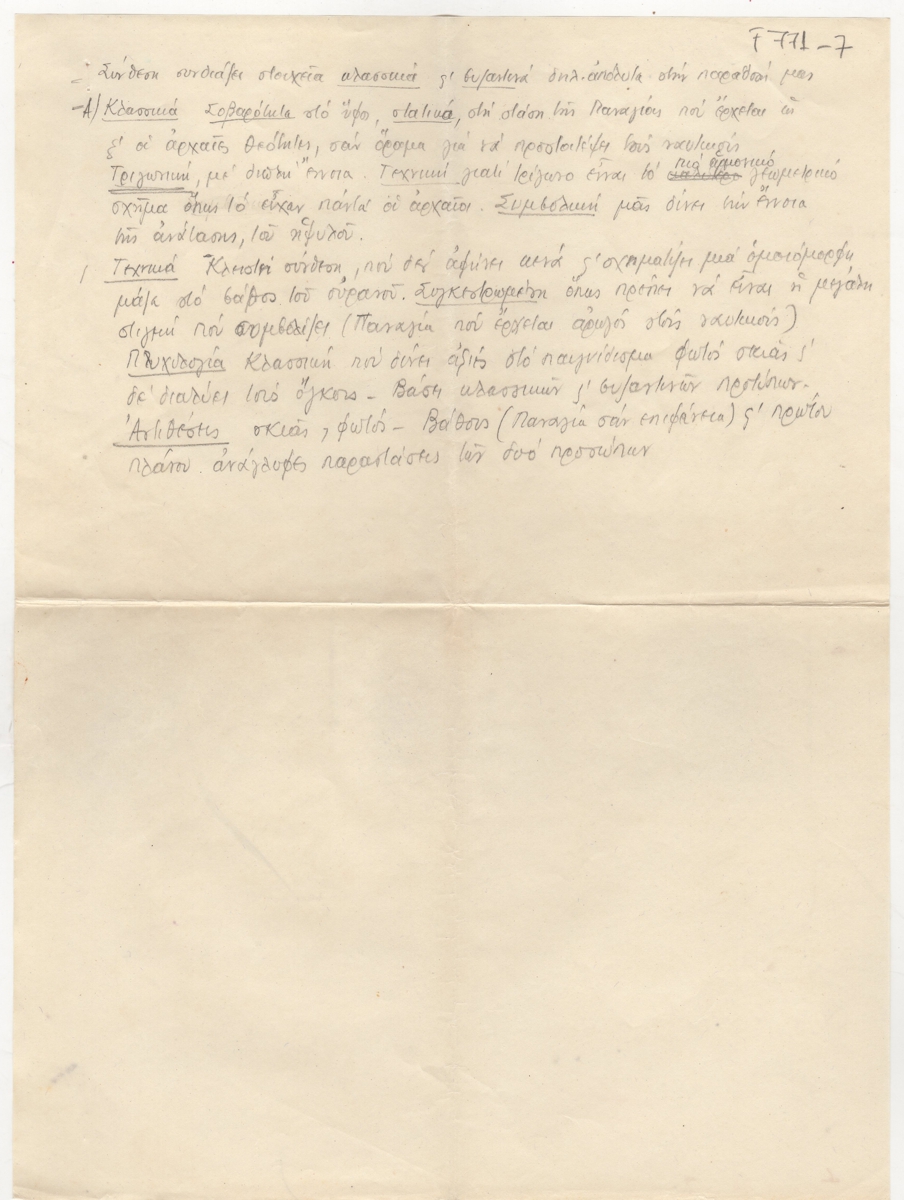 F 771-7
Σύνθεση συνδιάζει στοιχεῖα κλασσικά ϗ' βυζαντινά δηλ. ἀπόλυτα στήν παράδοσή μας
-Α) Κλασσικά Σοβαρότητα στό ὕφος, στατικά, στή στάση τῆς Παναγίας πού ἔρχεται
ϗ' οἱ ἀρχαῖες θεότητες, σάν ὅραμα γιά νά προστατέψει τούς ναυτικούς
Τριγωνική, μέ διπλῆ ἔννοια. Τεχνική γιατί τρίγωνο εἶναι τό πιό ἁρμονικό γεωμετρικό
σχῆμα ὅπως τό εἶχαν πάντα οἱ ἀρχαῖοι. Συμβολική μᾶς δίνει τήν ἔννοια
τῆς ἀνάτασης, τοῦ ὑψηλοῦ.
Τεχνικά Κλειστή σύνθεση, πού δέν ἀφήνει κενά ϗ' σχηματίζει μιά ὁμοιόμορφη
μάζα στό βάθος τοῦ οὐρανοῦ. Συγκεντρωμένη ὅπως πρέπει νά εἶναι ἡ μεγάλη
στιγμή πού συμβολίζει (Παναγία πού ἔρχεται ἀρωγός στούς ναυτικούς)
Πτυχολογία Κλασσική πού δίνει ἀξίες στό παιγνίδισμα φωτός σκιᾶς ϗ'
δέ διαλύει τούς ὄγκους - Βάσει κλασσικῶν ϗ' βυζαντινῶν προτύπων.
Ἀντιθέσεις σκιᾶς, φωτός - Βάθους (Παναγία σάν ἐπιφάνεια) ϗ' πρώτου
πλάνου. ἀνάγλυφες παραστάσεις τῶν δυό προσώπων